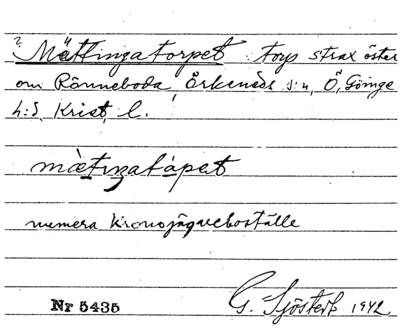 ? Mättingatorpet torp strax öster
om Rönneboda, Örkeneds s:n, Ö. Göinge
h:d, Krist. l.
màtiŋatápət
numera kronojägareboställe
Nr 5435 G. Sjösterß 1942